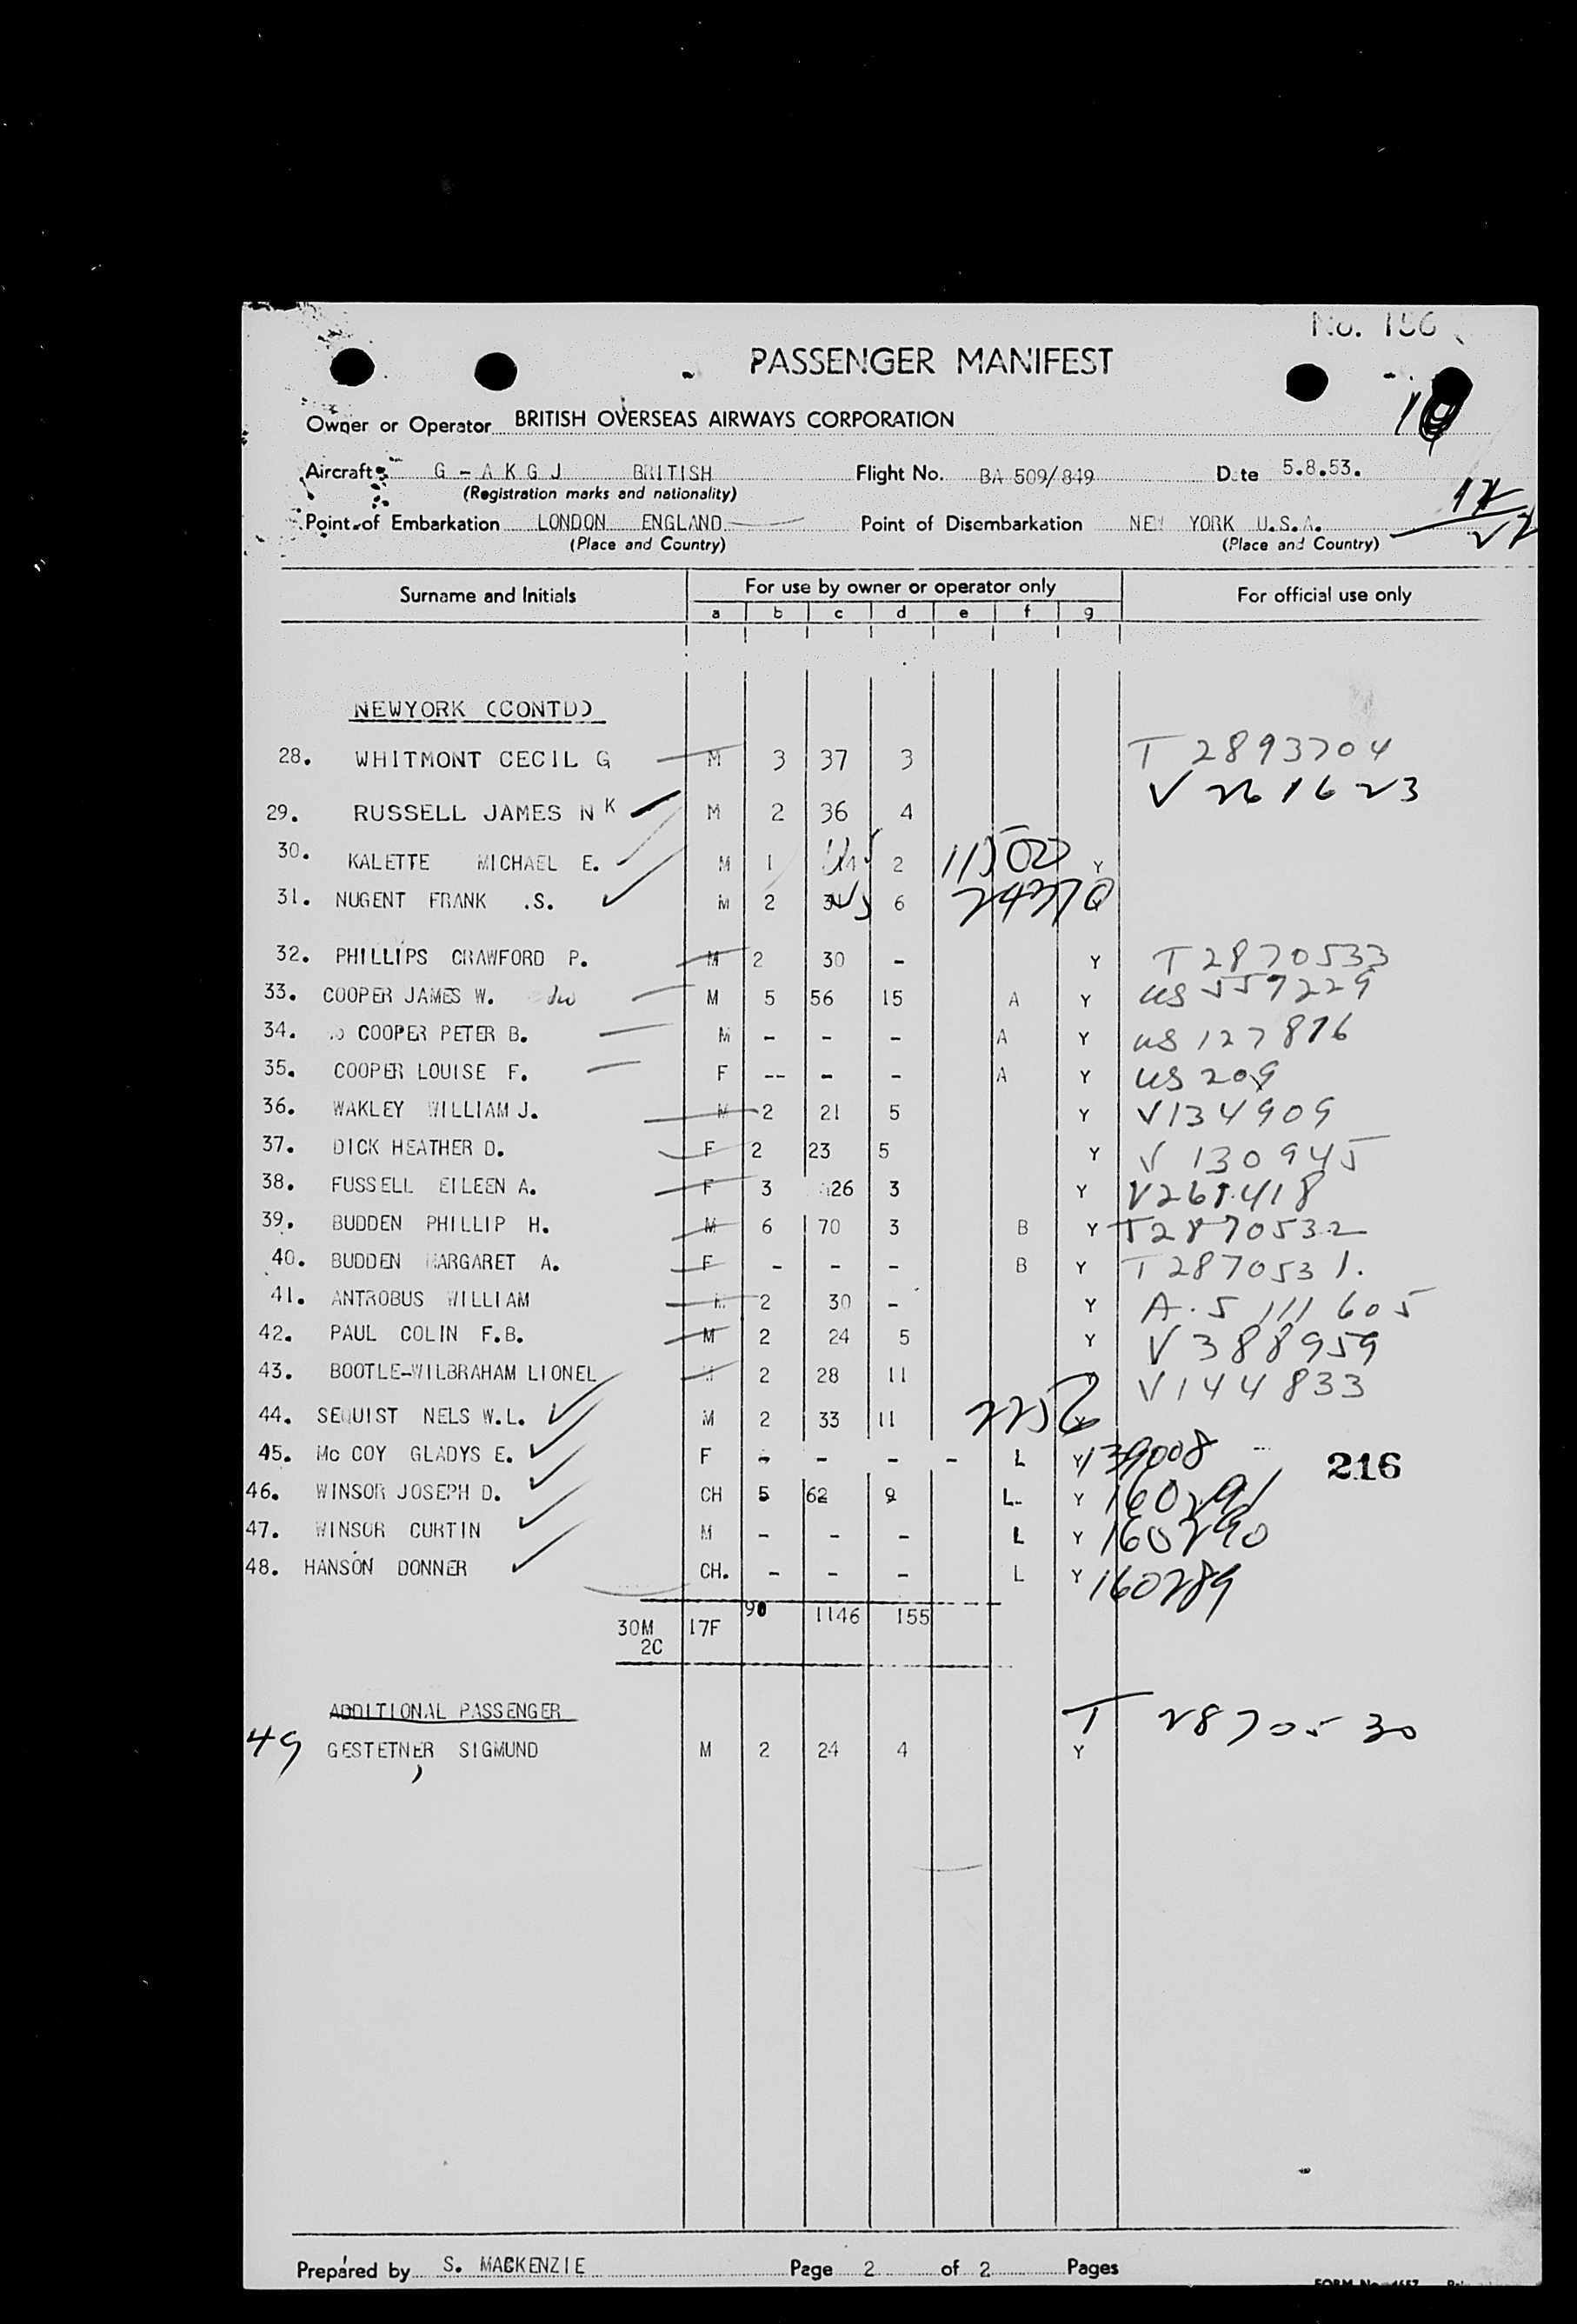 PASSENGER MANIFEST
Owner or Operator BRITISH OVERSEAS AIRWAYS CORPORATION
Aircraft G - A K G J BRITISH Flight No. BA 509/849 Date 5.8.53.
(Registration marks and nationality)
Point of Embarkation LONDON ENGLAND Point of Disembarkation NEW YORK U.S.A.
(Place and Country) (Place and Country)
Surname and Initials For use by owner or operator only For official use only
a b c d e f g
NEWYORK (CONTD)
28. WHITMONT CECIL G M 3 37 3 T 2893704
V 261623
29. RUSSELL JAMES N K M 2 36 4
30. KALETTE MICHAEL E. M 1 2 11500 Y
31. NUGENT FRANK .S. M 2 6 24370
32. PHILLIPS CRAWFORD P. M 2 30 - Y T 2870533
33. COOPER JAMES W. M 5 56 15 A Y US 559229
34. COOPER PETER B. M - - - A Y US 127876
35. COOPER LOUISE F. F -- - - A Y US 209
36. WAKLEY WILLIAM J. M 2 21 5 Y V134909
37. DICK HEATHER D. F 2 23 5 Y V 130945
38. FUSSELL EILEEN A. F 3 26 3 Y
39. BUDDEN PHILLIP H. M 6 70 3 B Y T2870532
40. BUDDEN MARGARET A. F - - - B Y T2870531.
41. ANTROBUS WILLIAM M 2 30 - Y A.S 111605
42. PAUL COLIN F.B. M 2 24 5 Y V 388959
43. BOOTLE-WILBRAHAM LIONEL M 2 28 11 V144833
44. SEQUIST NELS W.L. M 2 33 11 Y
45. Mc COY GLADYS E. F - - - - L Y 139008
216
46. WINSOR JOSEPH D. CH 5 62 9 L. Y 160291
47. WINSOR CURTIN M - - - L Y 160290
48. HANSON DONNER CH. - - - L Y 160289
30M 17F 90 1146 155
2C
ADDITIONAL PASSENGER
T 2870530
49 GESTETNER SIGMUND M 2 24 4 Y
Prepared by S. MACKENZIE Page 2 of 2 Pages